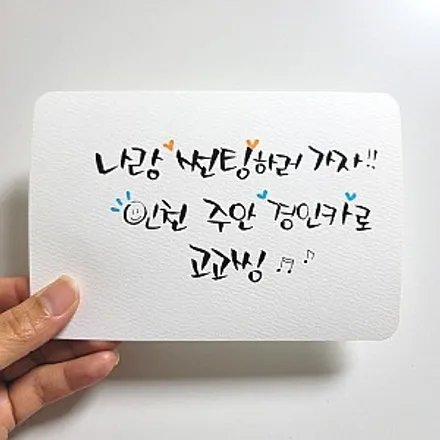 나랑 썬팅하러 가자!!
인천 주안 경인카로
고고씽